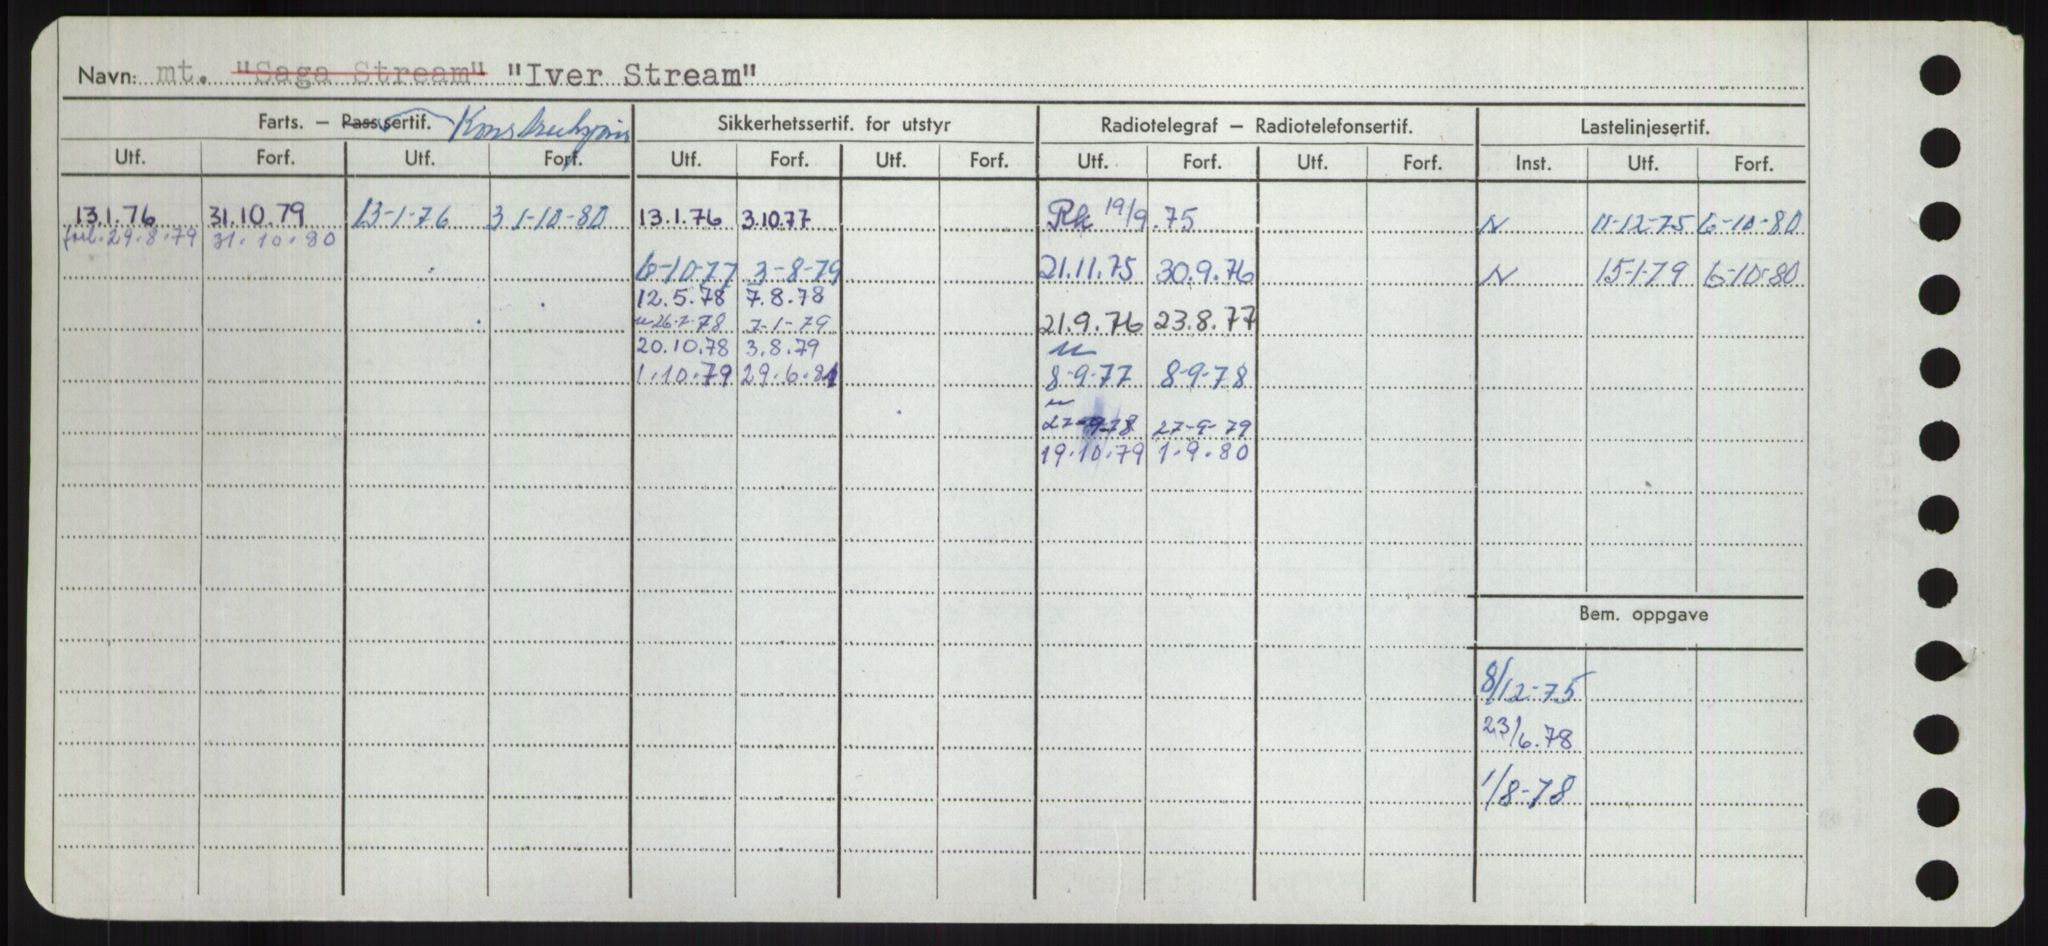 Navn: mt. "Saga Stream" "Iver Stream"
Farts. – Passsertif. Konstruksjons Sikkerhetssertif. for utstyr Radiotelegraf – Radiotelefonsertif. Lastelinjesertif.
Utf. Forf. Utf. Forf. Utf. Forf. Utf. Forf. Utf. Forf. Utf. Forf. Inst. Utf. Forf.
13.1.76 31.10.79 13-1-76 31-10-80 13.1.76 3.10.77 Rk 19/9.75 N 11-12-75 6-10-80
forl. 29.8.79 31.10.80
6-10-77 3-8-79 21.11.75 30.9.76 N 15-1-79 6-10-80
12.5.78 7.8.78
u 26-7-78 7-1-79 21.9.76 23.8.77
20.10.78 3.8.79 u
1.10.79 29.6.81 8-9-77 8-9-78
u
27-9-78 27-9-79
19.10.79 1.9.80
Bem. oppgave
8/12-75
23/6.78
1/8-78